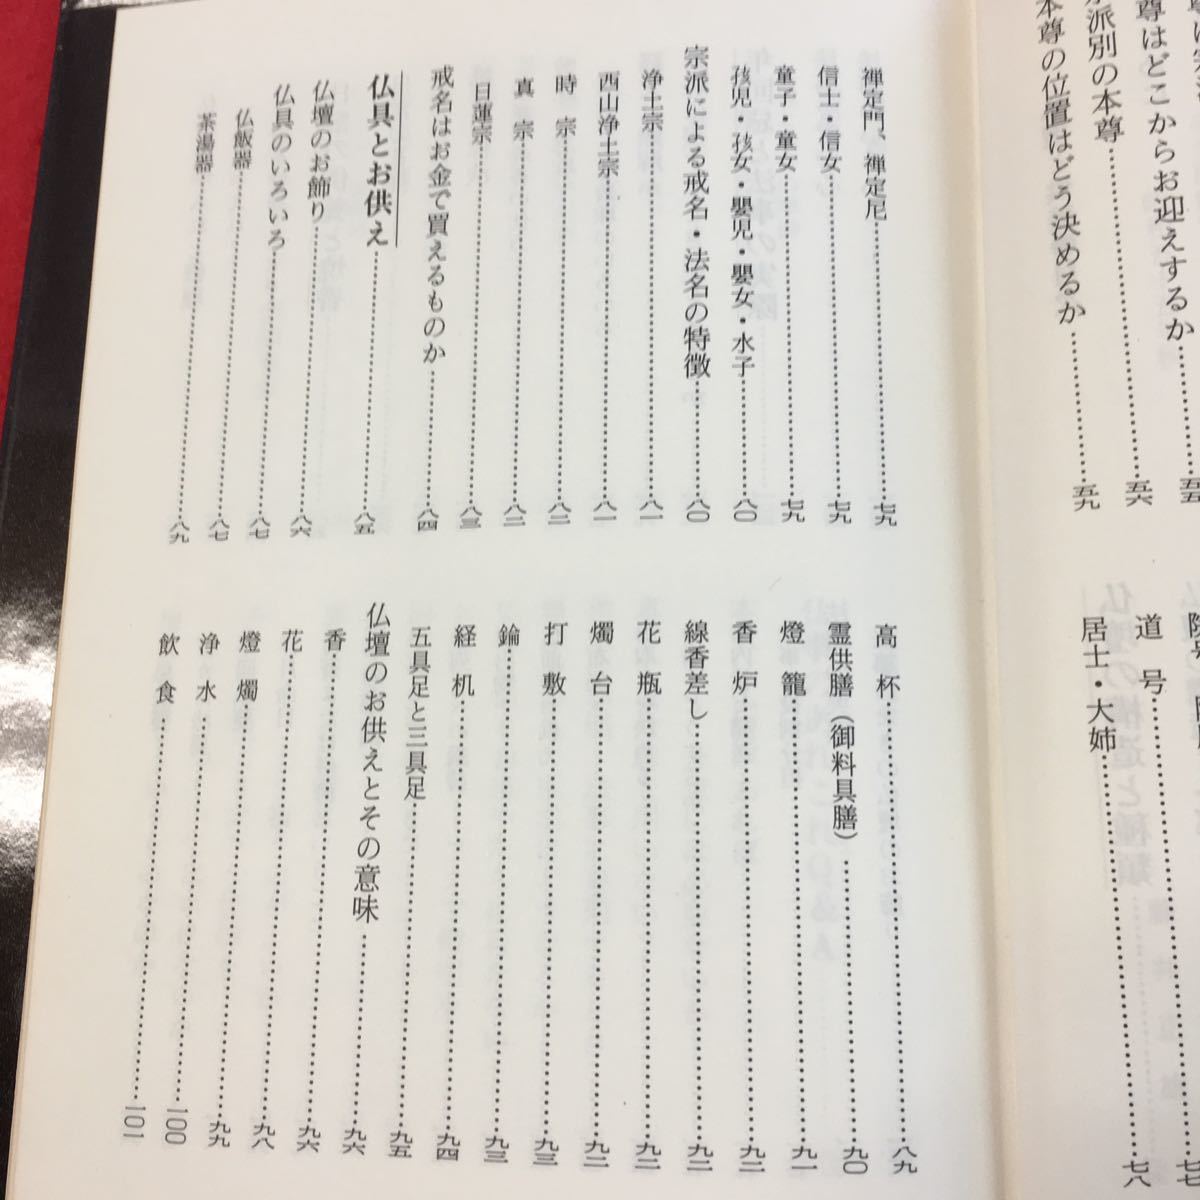 尊はどこからお迎えするか……………五五
派別の本尊……………五六
本尊の位置はどう決めるか……………五九
道　号……………七七
居士・大姉……………七八
禅定門、禅定尼……………七九
信士・信女……………七九
童子・童女……………七九
孩児・孩女・嬰児・嬰女・水子……………八〇
宗派による戒名・法名の特徴……………八〇
浄土宗……………八一
西山浄土宗……………八一
時　宗……………八二
真　宗……………八二
日蓮宗……………八三
戒名はお金で買えるものか……………八四
仏具とお供え……………八五
仏壇のお飾り……………八六
仏具のいろいろ……………八七
仏飯器……………八七
茶湯器……………八九
高　杯……………八九
霊供膳（御料具膳）……………九〇
燈　籠……………九一
香　炉……………九二
線香差し……………九二
花　瓶……………九二
燭　台……………九二
打　敷……………九三
錀……………九三
経　机……………九四
五具足と三具足……………九五
仏壇のお供えとその意味……………九六
香……………九六
花……………九八
燈　燭……………九九
浄　水……………一〇〇
飲　食……………一〇一